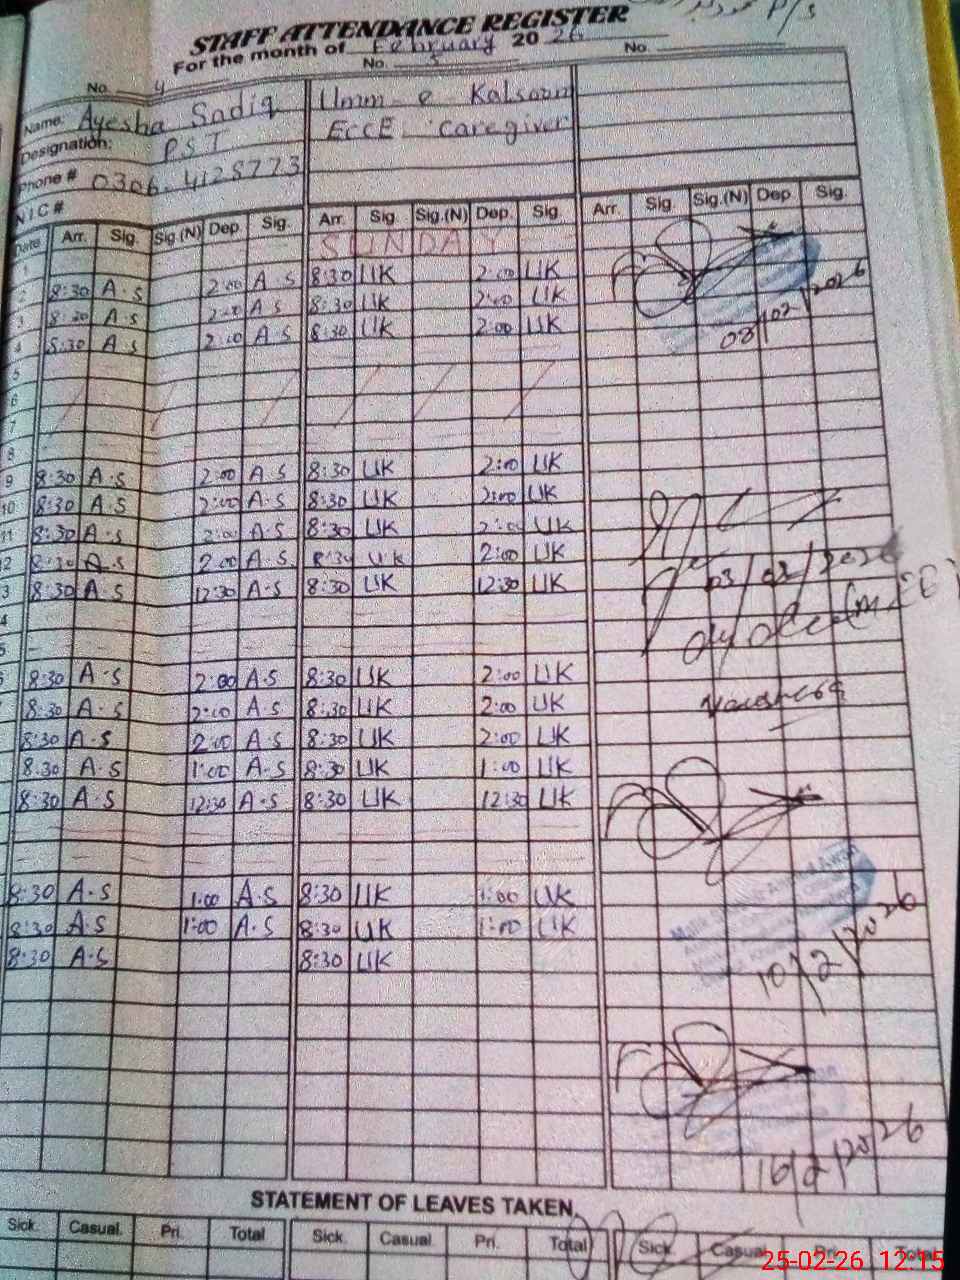 P/s
STAFF ATTENDANCE REGISTER
For the month of February 2026
No. 4 No. 5 No.
Name: Ayesha Sadiq Umm e Kalsoom
Designation: PST ECCE Caregiver
Phone # 0306-4128773
NIC #
Date Arr. Sig. Sig.(N) Dep. Sig. Arr. Sig. Sig.(N) Dep. Sig. Arr. Sig. Sig.(N) Dep. Sig.
1 SUNDAY
2 8:30 A.S 2:00 A.S 8:30 UK 2:00 UK
3 8:30 A.S 2:00 A.S 8:30 UK 2:00 UK
4 8:30 A.S 2:00 A.S 8:30 UK 2:00 UK
5
6
7
8
9 8:30 A.S 2:00 A.S 8:30 UK 2:00 UK
10 8:30 A.S 2:00 A.S 8:30 UK 2:00 UK
11 8:30 A.S 2:00 A.S 8:30 UK 2:00 UK
2 8:30 A.S 2:00 A.S 8:30 UK 2:00 UK
3 8:30 A.S 12:30 A.S 8:30 UK 12:30 UK
4
5
8:30 A.S 2:00 A.S 8:30 UK 2:00 UK
8:30 A.S 2:00 A.S 8:30 UK 2:00 UK
8:30 A.S 2:00 A.S 8:30 UK 2:00 UK
8:30 A.S 1:00 A.S 8:30 UK 1:00 UK
8:30 A.S 12:30 A.S 8:30 UK 12:30 UK
8:30 A.S 1:00 A.S 8:30 UK 1:00 UK
8:30 A.S 1:00 A.S 8:30 UK 1:00 UK
8:30 A.S 8:30 UK
03/02/2026
10/2/2026
16/2/2026
STATEMENT OF LEAVES TAKEN.
Sick. Casual. Pri. Total Sick. Casual. Pri. Total Sick. Casual. Pri. Total
25-02-26 12:15